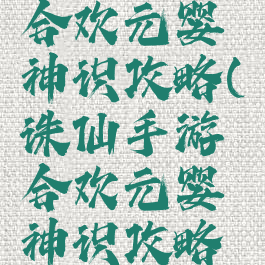 合欢元婴
神识攻略(
诛仙手游
合欢元婴
神识攻略